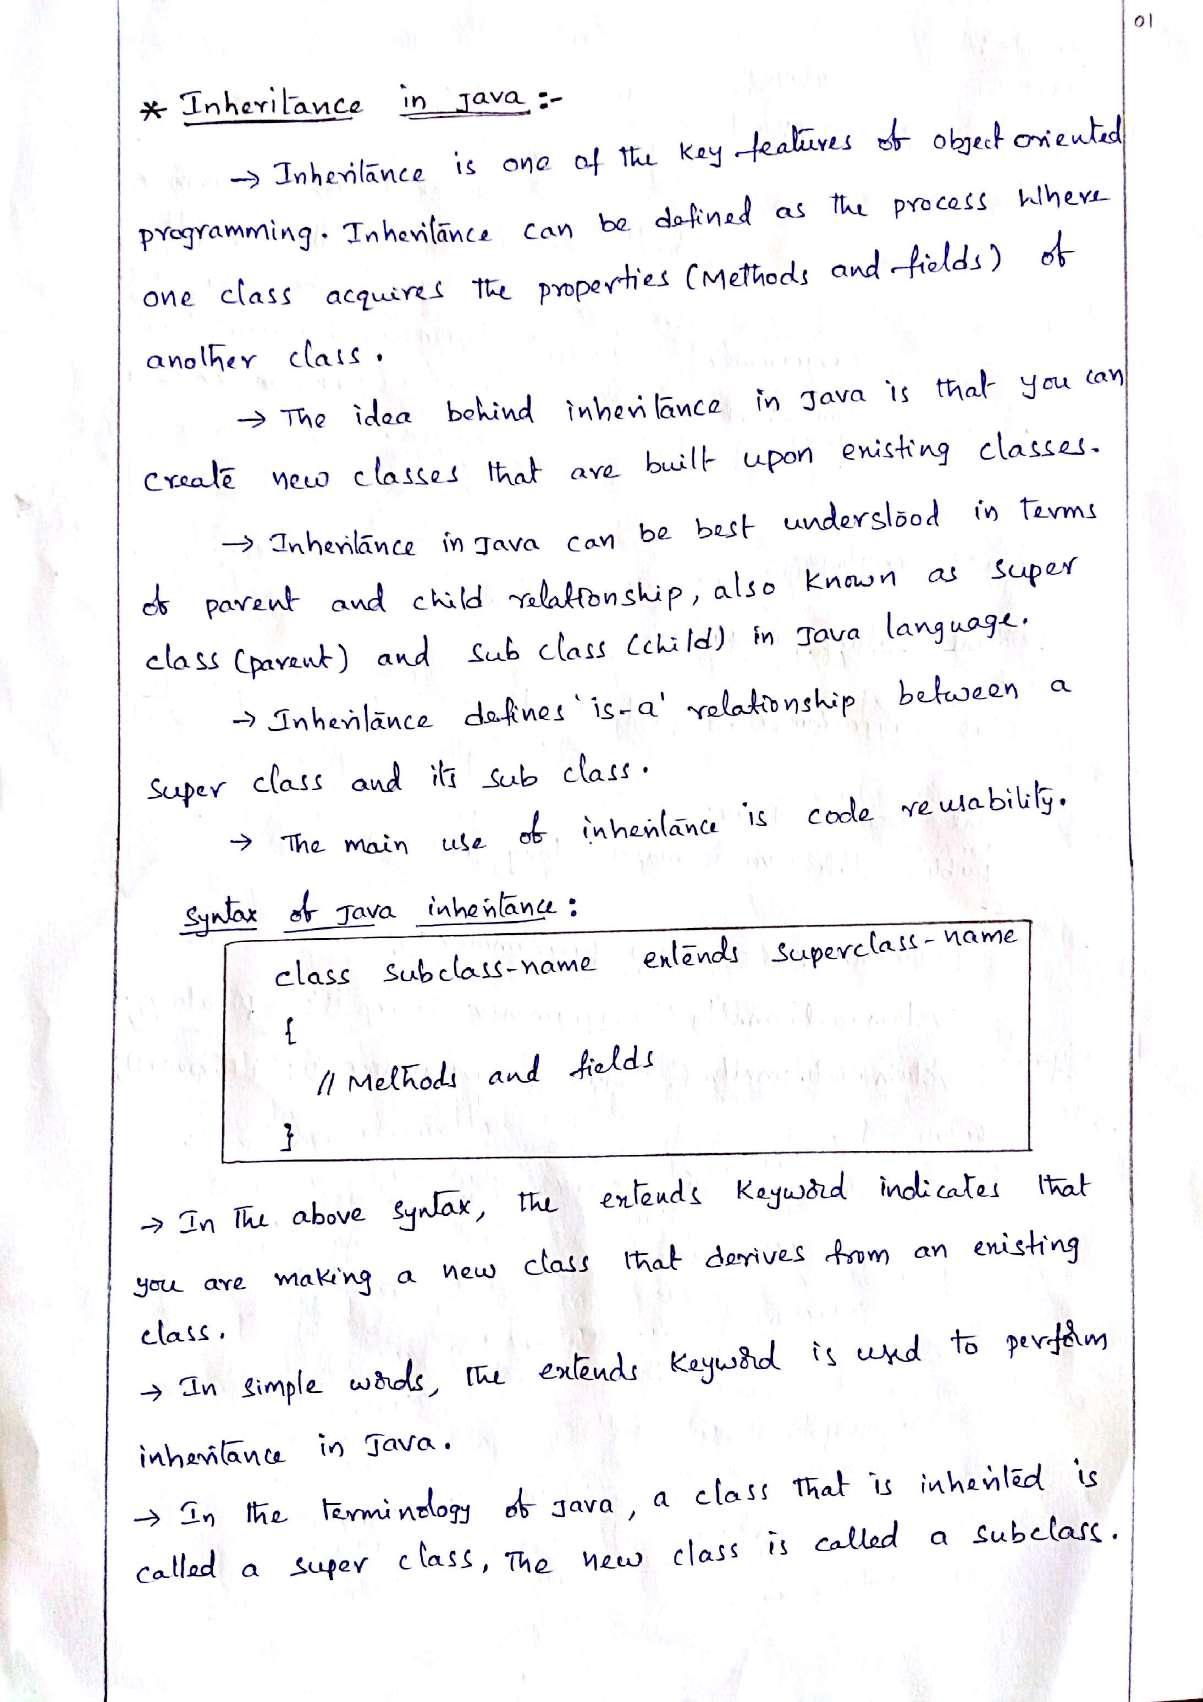 01
* Inheritance in Java :-
→ Inheritance is one of the key features of object oriented
programming. Inheritance can be defined as the process where
one class acquires the properties (Methods and fields) of
another class.
→ The idea behind inheritance in Java is that you can
create new classes that are built upon existing classes.
→ Inheritance in Java can be best understood in terms
of parent and child relationship, also known as super
class (parent) and sub class (child) in Java language.
→ Inheritance defines 'is-a' relationship between a
super class and its sub class.
→ The main use of inheritance is code reusability.
Syntax of Java inheritance :
class subclass-name extends superclass-name
{
// Methods and fields
}
→ In the above syntax, the extends keyword indicates that
you are making a new class that derives from an existing
class.
→ In simple words, the extends keyword is used to perform
inheritance in Java.
→ In the terminology of Java, a class that is inherited is
called a super class, The new class is called a subclass.